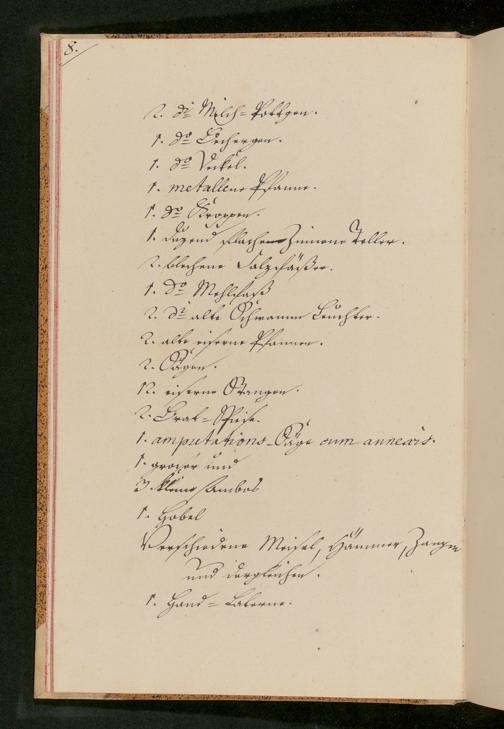 8.
2. do Milch=Pottgen.
1. do
1. do Deckel.
1. metallene Pfanne.
1. do Groppen.
1. dutzend flache Zinnene Teller.
2. blechene Salzfäßer.
1. do Mehlfaß
2. do alte Leuchter.
2. alte eiserne Pfannen.
2. Sägen.
12. eiserne Stangen.
2. Brat=Spiese.
1. amputations-Säge cum annexis.
1. groser und
3. kleine Ambos
1. Hobel
Verschiedene Meisel, Hämmer, Zangen
und dergleichen.
1. Hand=Laterne.